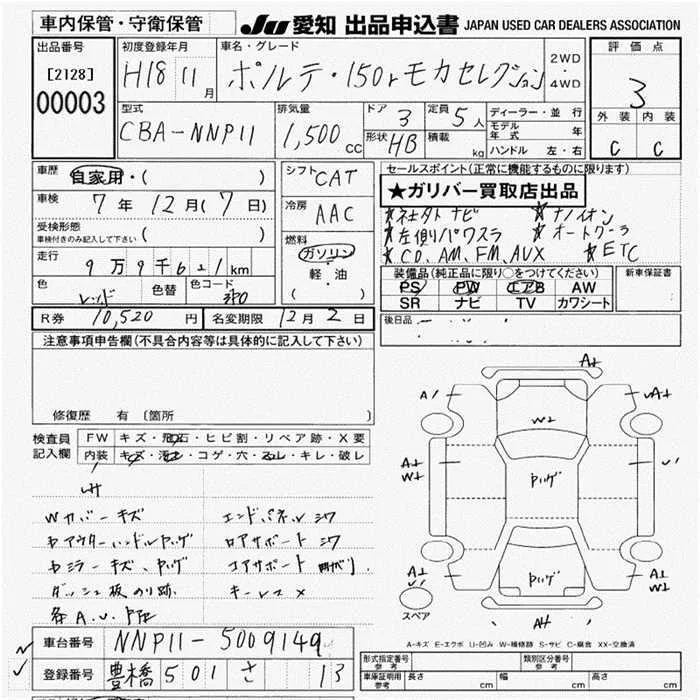 車内保管・守衛保管
JU 愛知 出品申込書 JAPAN USED CAR DEALERS ASSOCIATION
出品番号
[2128]
00003
初度登録年月
H18 11月
車名・グレード
ポルテ・150r モカセレクション
2WD
・
4WD
評価点
3
外装 内装
C C
型式
CBA-NNP11
排気量
1,500 CC
ドア 3
定員 5人
形状 HB
積載 kg
ディーラー・並行
モデル年式 年
ハンドル 左・右
車歴 自家用・( )
車検 7年 12月(7日)
受検形態
車検付きのみ記入して下さい ( )
走行 9万9千621km
色 レッド
色替
色コード 3P0
シフト CAT
冷房 AAC
燃料
ガソリン
軽・油
( )
セールスポイント(正常に機能するものに限ります)
★ガリバー買取店出品
★社外ナビ ★ナノイオン
★左側パワスラ ★オートクーラ
★CD、AM、FM、AUX ★ETC
装備品(純正品に限り○をつけてください)
PS PW エアB AW
SR ナビ TV カワシート
新車保証書
R券 10,520円
名変期限 12月2日
後日品
注意事項申告欄(不具合内容等は具体的に記入して下さい)
修復歴 有 〔箇所
検査員記入欄
FW キズ・飛石・ヒビ割・リペア跡・X要
内装 キズ・汚レ・コゲ・穴・スレ・キレ・破レ
Wカバーキズ
ダッシュ板のり跡
エンドパネルシワ
ロアサポートシワ
コアサポート曲がり.
キーレスX
A↑
A1
W2
A↑
W↑
Pハゲ
Pハゲ
A↑
W↑
スペア
A-キズ E-エクボ U-凹み W-補修跡 S-サビ C-腐食 XX-交換済
車台番号 NNP11-5009149
登録番号 豊橋 501 さ 13
形式指定番号 参考
類別区分番号 参考
車庫証明用参考 長さ cm 幅 cm 高さ cm